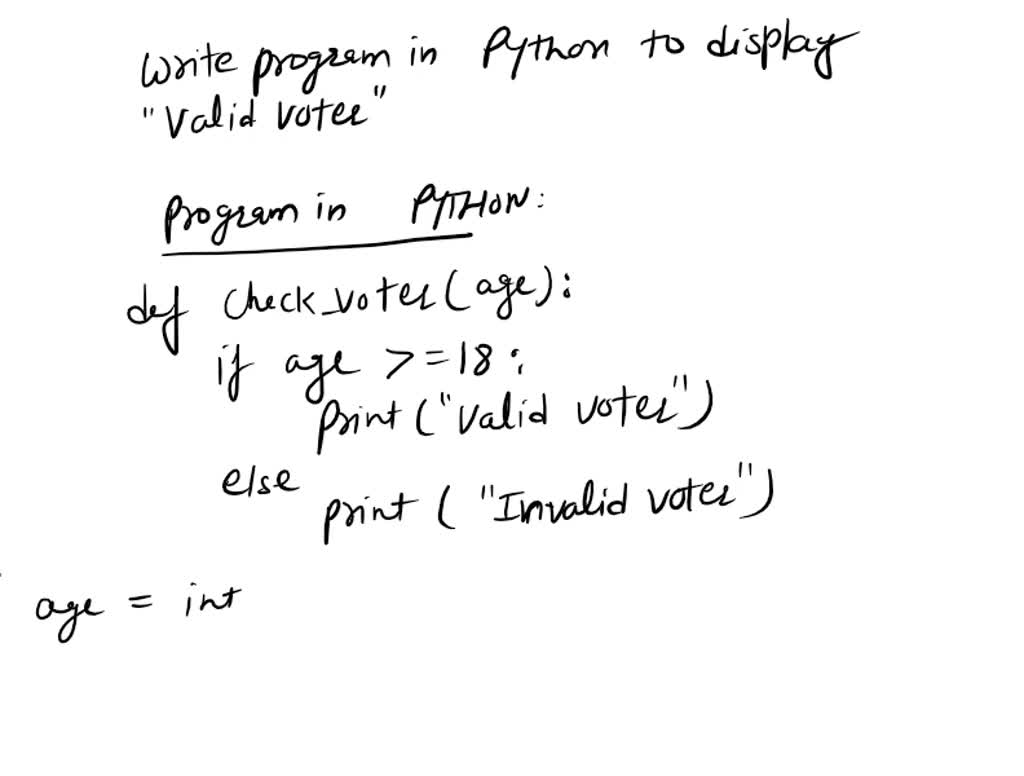 Write program in Python to display
"Valid voter"
Program in PYTHON:
def check_voter(age):
if age >=18:
print("Valid voter")
else
print ( "Invalid voter")
age = int